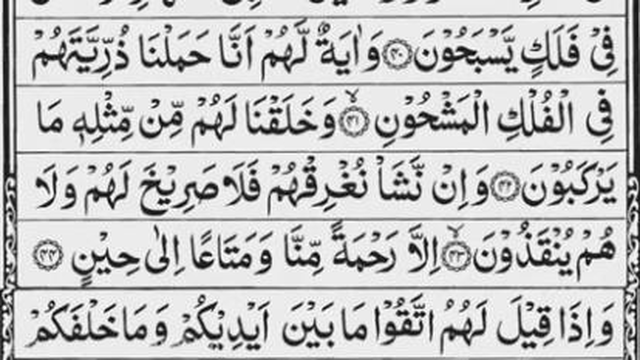 فِىۡ فَلَكٍ يَّسۡبَحُوۡنَ ﴿۴۰﴾ وَاٰيَةٌ لَّهُمۡ اَنَّا حَمَلۡنَا ذُرِّيَّتَهُمۡ
فِى الۡفُلۡكِ الۡمَشۡحُوۡنِ ﴿۴۱﴾ وَخَلَقۡنَا لَهُمۡ مِّنۡ مِّثۡلِهٖ مَا
يَرۡكَبُوۡنَ ﴿۴۲﴾ وَاِنۡ نَّشَاۡ نُغۡرِقۡهُمۡ فَلَا صَرِيۡخَ لَهُمۡ وَلَا
هُمۡ يُنۡقَذُوۡنَ ﴿۴۳﴾ اِلَّا رَحۡمَةً مِّنَّا وَمَتَاعًا اِلٰى حِيۡنٍ ﴿۴۴﴾
وَاِذَا قِيۡلَ لَهُمُ اتَّقُوۡا مَا بَيۡنَ اَيۡدِيۡكُمۡ وَمَا خَلۡفَكُمۡ